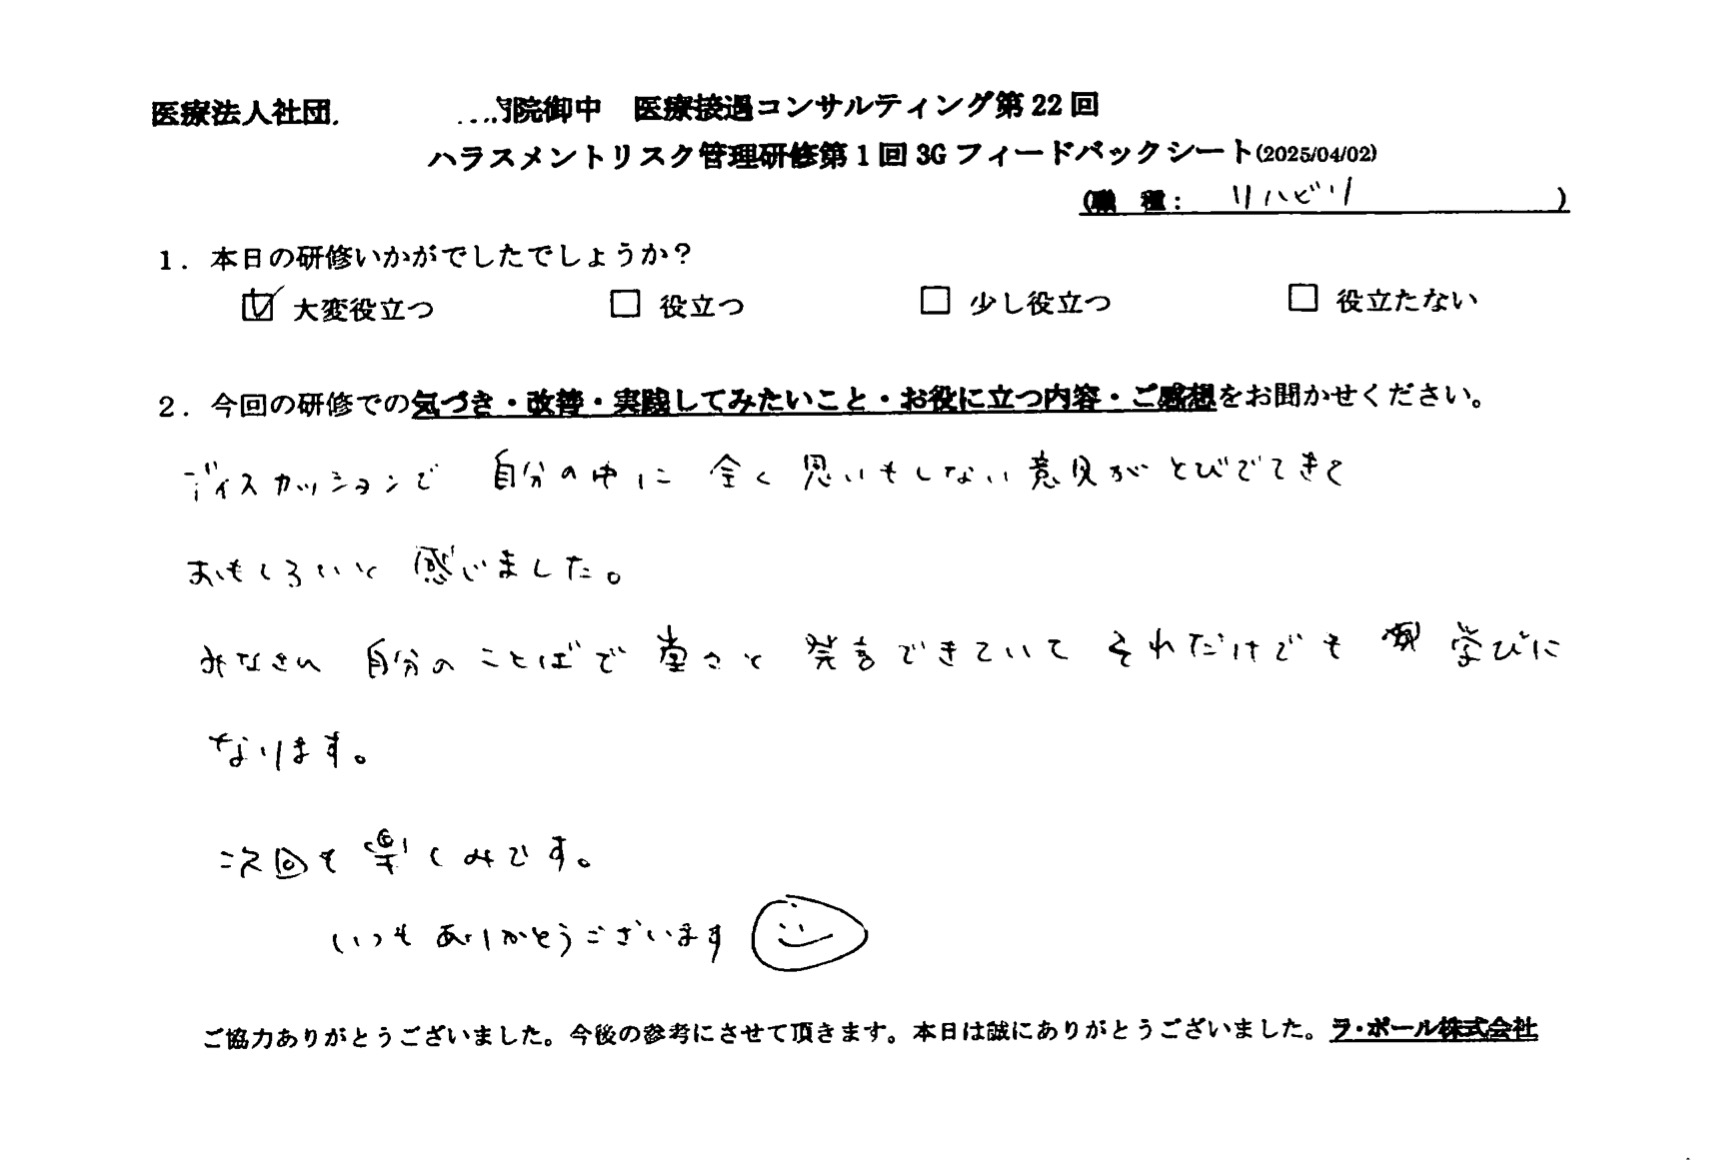 医療法人社団 院御中 医療接遇コンサルティング第22回
ハラスメントリスク管理研修第1回3Gフィードバックシート(2025/04/02)
(職 種: リハビリ )
1. 本日の研修いかがでしたでしょうか?
☑ 大変役立つ □ 役立つ □ 少し役立つ □ 役立たない
2. 今回の研修での気づき・改善・実践してみたいこと・お役に立つ内容・ご感想をお聞かせください。
ディスカッションで 自分の中に 全く思いもしない意見がとびでてきて
おもしろいと 感じました。
みなさん 自分のことばで 堂々と 発言できていて それだけでも 学びに
なります。
次回も楽しみです。
いつも ありがとうございます
ご協力ありがとうございました。今後の参考にさせて頂きます。本日は誠にありがとうございました。ラ・ポール株式会社